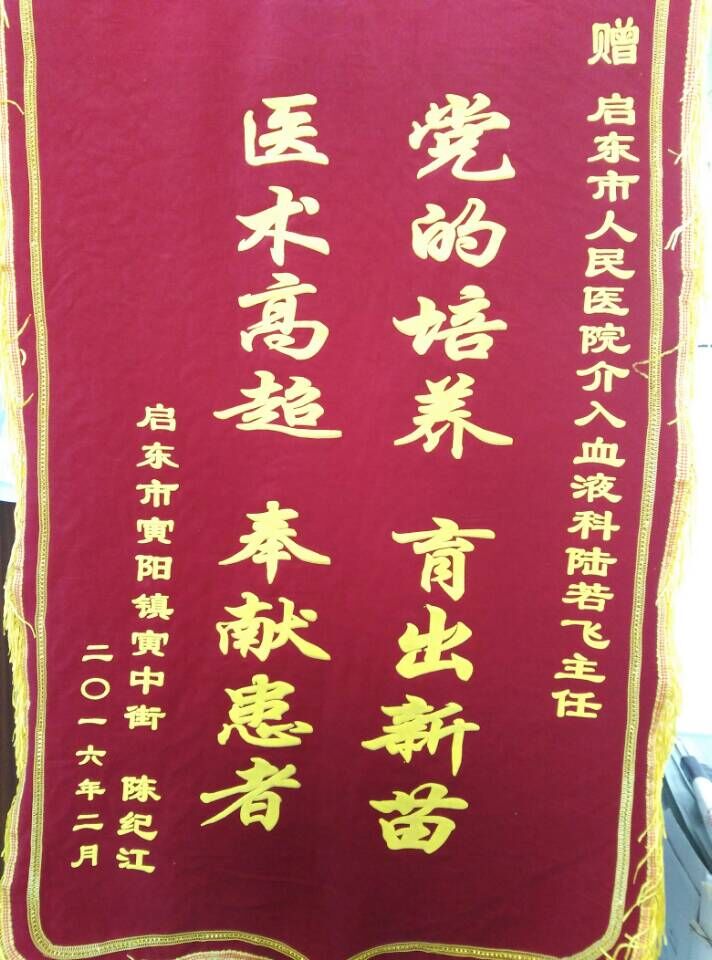 赠 启东市人民医院介入血液科陆若飞主任
党的培养 育出新苗
医术高超 奉献患者
启东市寅阳镇寅中街 陈纪江
二〇一六年二月